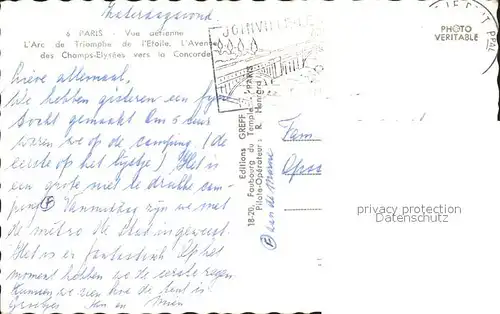 Zaterdagavond.
6 PARIS - Vue aérienne
L'Arc de Triomphe de l'Etoile, L'Avenue
des Champs-Elysées vers la Concorde
JOINVILLE-LE
PHOTO
VERITABLE
Lieve allemaal,
We hebben gisteren een fijne
tocht gemaakt Om 5 uur
waren we op de camping (de
eerste op het lijstje) Het is
een grote niet te drukke cam-
ping Vanmiddag zijn we met
de métro de stad ingeweest.
Het is er fantastisch Op het
moment hebben we de eerste regen
Kunnen we zien hoe de tent is
Groetjes en
Editions GREFF
18-20, Faubourg du Temple - PARIS
Pilote-Opérateur : R. Henrard
aan de Marne
Fam.
privacy protection
Datenschutz